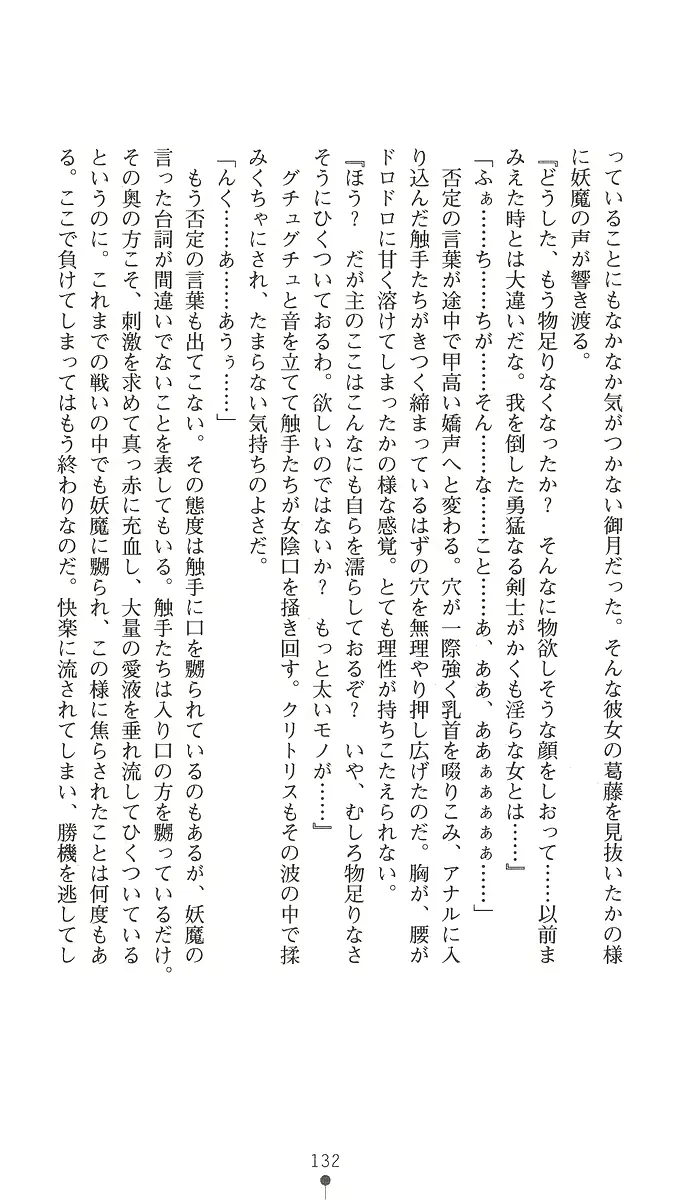 っていることにもなかなか気がつかない御月だった。そんな彼女の葛藤を見抜いたかの様
に妖魔の声が響き渡る。
『どうした、もう物足りなくなったか？　そんなに物欲しそうな顔をしおって……以前ま
みえた時とは大違いだな。我を倒した勇猛なる剣士がかくも淫らな女とは……』
「ふぁ……ち……ちが……そん……な……こと……あ、ああ、ああぁぁぁぁ……」
　否定の言葉が途中で甲高い嬌声へと変わる。穴が一際強く乳首を啜りこみ、アナルに入
り込んだ触手たちがきつく締まっているはずの穴を無理やり押し広げたのだ。胸が、腰が
ドロドロに甘く溶けてしまったかの様な感覚。とても理性が持ちこたえられない。
『ほう？　だが主のここはこんなにも自らを濡らしておるぞ？　いや、むしろ物足りなさ
そうにひくついておるわ。欲しいのではないか？　もっと太いモノが……』
　グチュグチュと音を立てて触手たちが女陰口を掻き回す。クリトリスもその波の中で揉
みくちゃにされ、たまらない気持ちのよさだ。
「んく……あ……あうぅ……」
　もう否定の言葉も出てこない。その態度は触手に口を嬲られているのもあるが、妖魔の
言った台詞が間違いでないことを表してもいる。触手たちは入り口の方を嬲っているだけ。
その奥の方こそ、刺激を求めて真っ赤に充血し、大量の愛液を垂れ流してひくついている
というのに。これまでの戦いの中でも妖魔に嬲られ、この様に焦らされたことは何度もあ
る。ここで負けてしまってはもう終わりなのだ。快楽に流されてしまい、勝機を逃してし
132